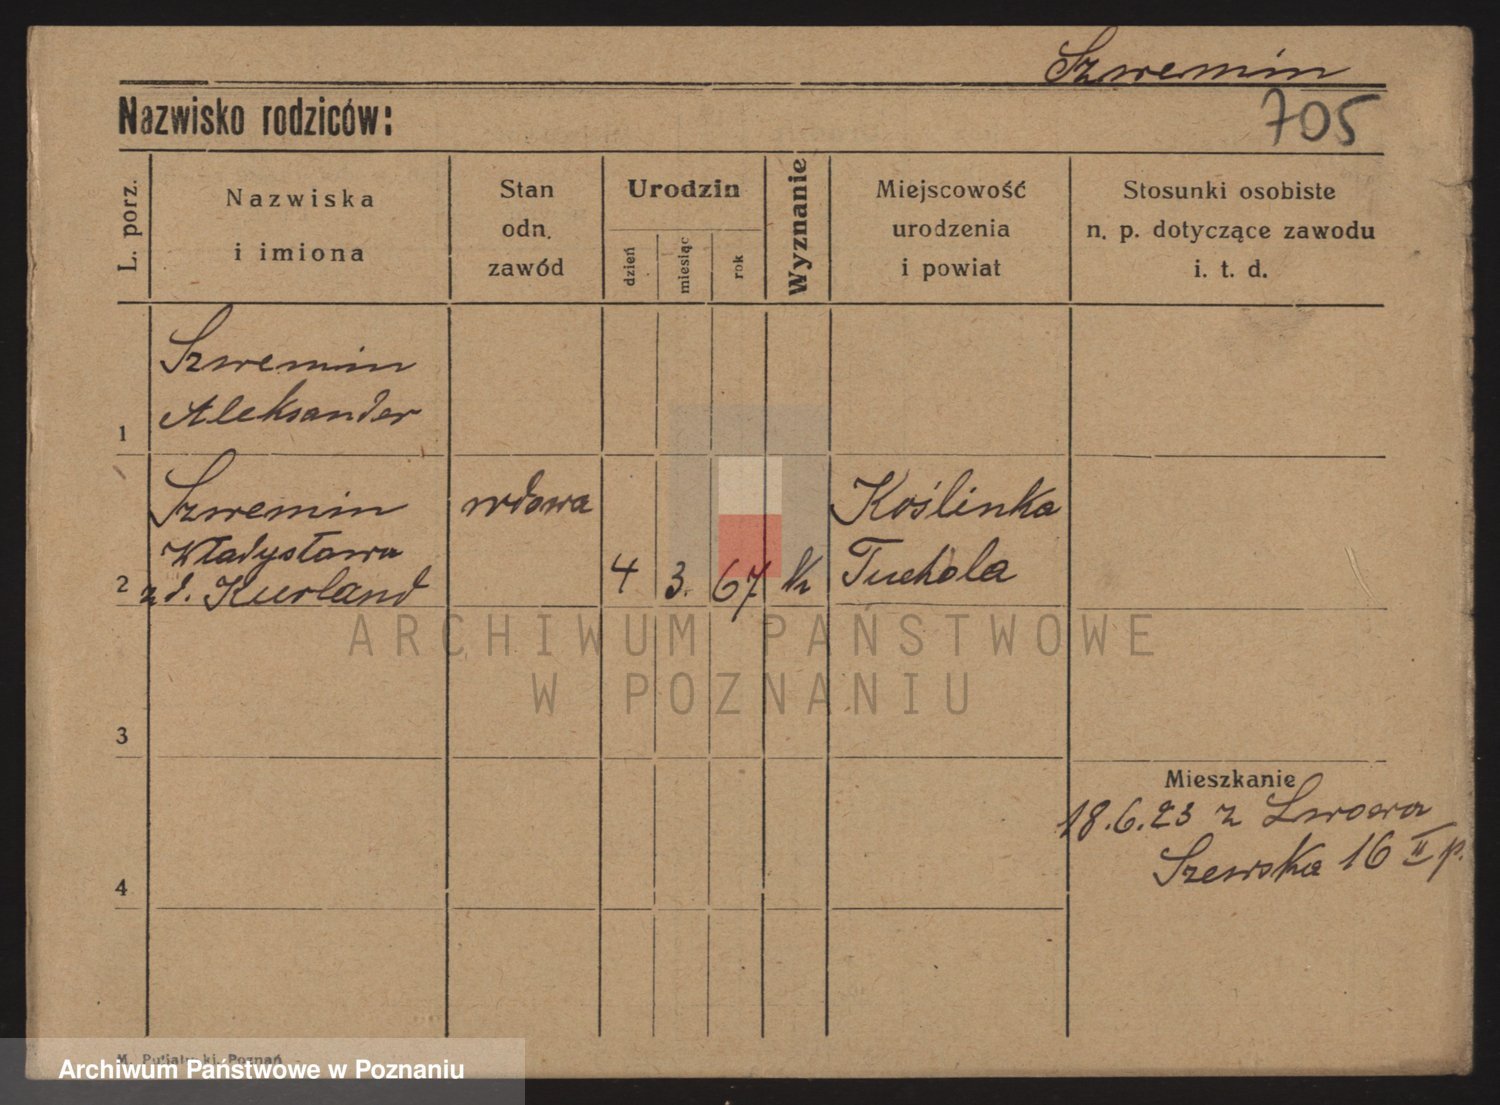 Szwemin
Nazwisko rodziców:
705
L. porz.
Nazwiska
i imiona
Stan
odn.
zawód
Urodzin
dzień
miesiąc
rok
Wyznanie
Miejscowość
urodzenia
i powiat
Stosunki osobiste
n. p. dotyczące zawodu
i. t. d.
1
Szwemin
Aleksander
2
Szwemin
Władysława
z d. Kurland
wdowa
4
3.
67
k
Koślinka
Tuchola
ARCHIWUM PAŃSTWOWE
W POZNANIU
3
Mieszkanie
18.6.23 z Lwowa
Szewska 16 II p.
4
Poznań
Archiwum Państwowe w Poznaniu